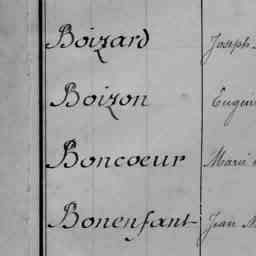 Boizard Joseph
Boizon
Boncoeur Marie
Bonenfant Jean